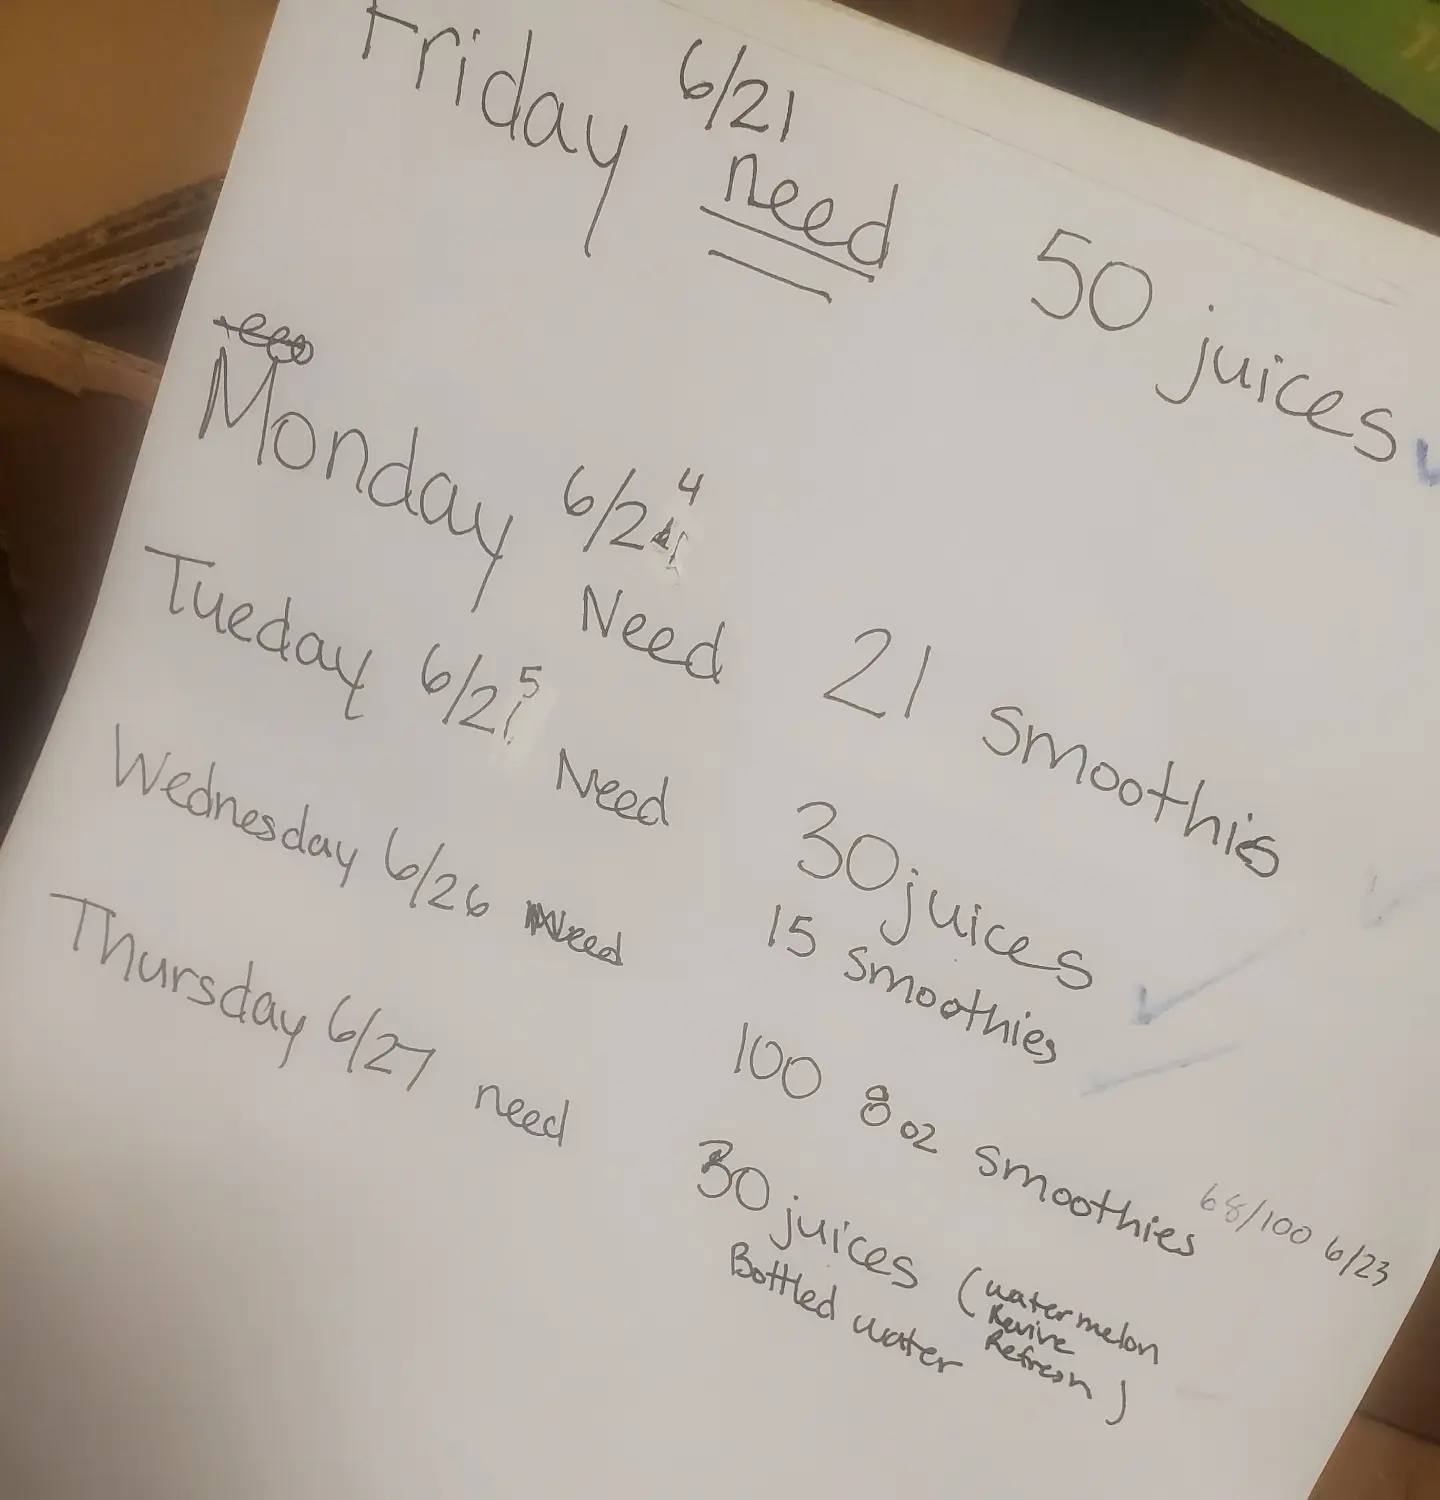 Friday 6/21 need 50 juices ✓
Monday 6/24 Need 21 smoothis ✓
Tueday 6/25 Need 30 juices ✓
15 smoothies
Wednesday 6/26 Need 100 8 oz smoothies 68/100 6/23
Thursday 6/27 need 30 juices (watermelon
Revive
Refresh)
Bottled water